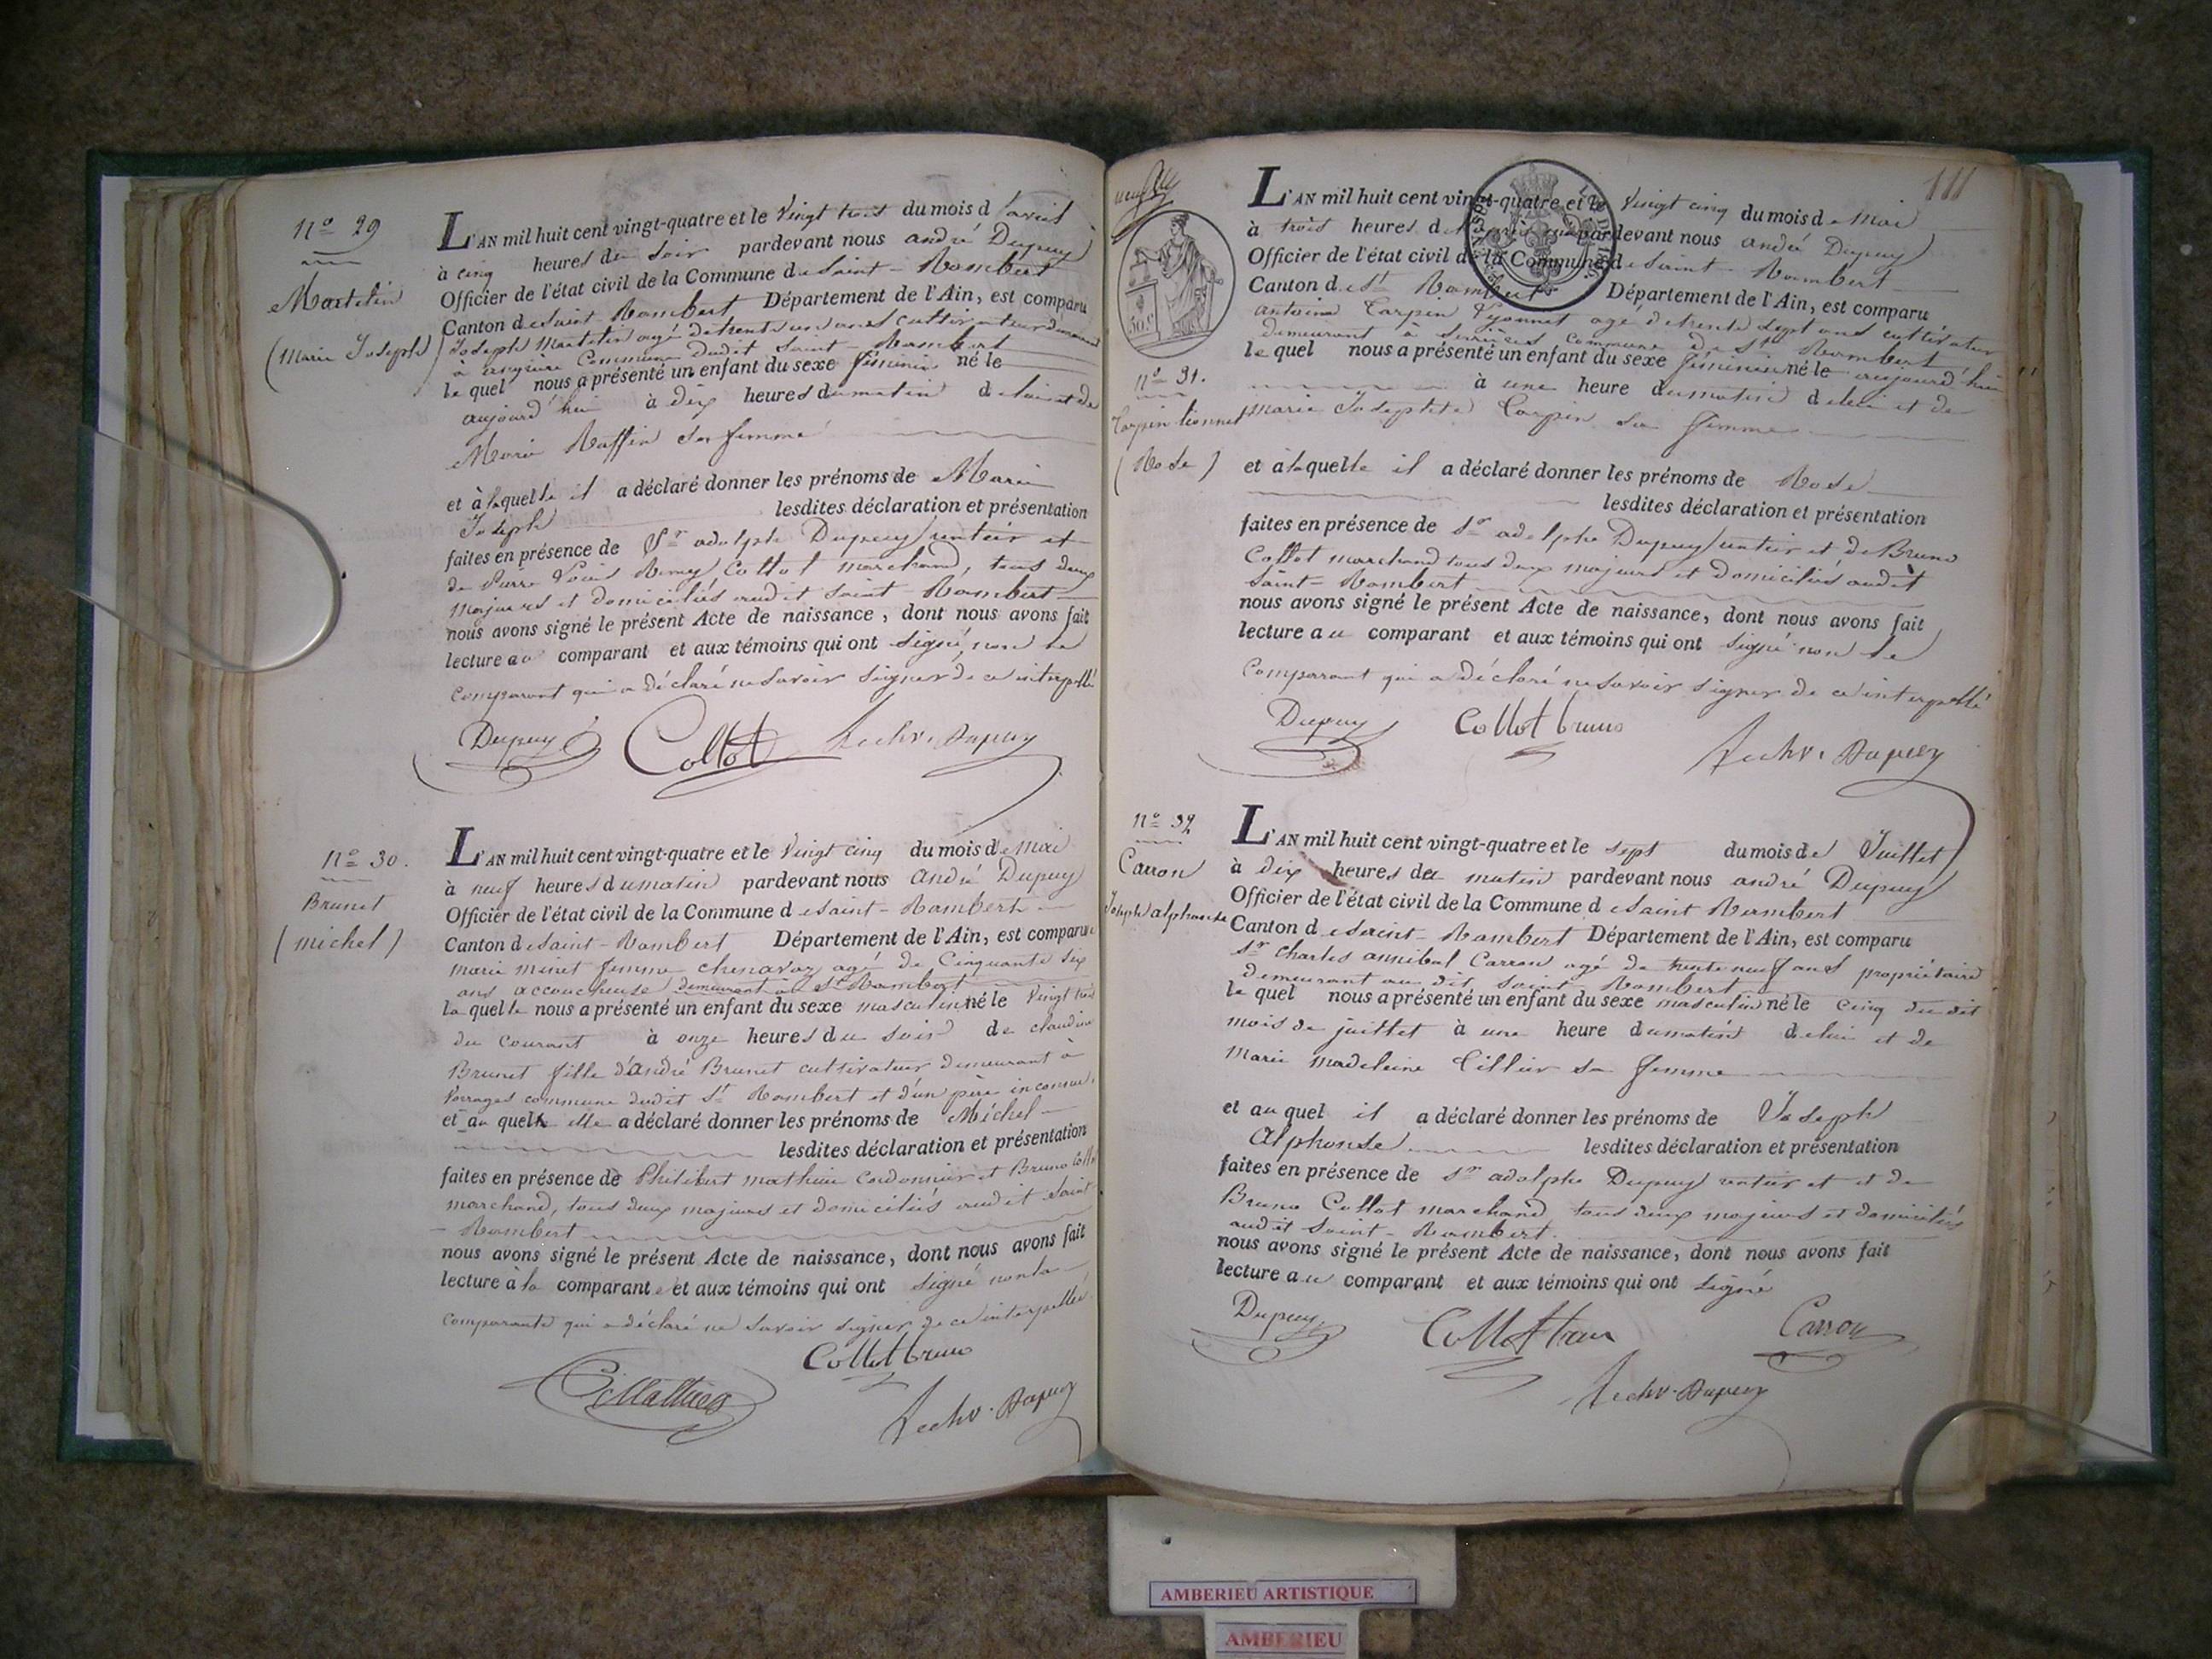 n.º 29
Martelin
(Marie Joseph)
L'AN mil huit cent vingt-quatre et le vingt trois du mois d'avril
à cinq heures du soir pardevant nous andré Dupuy
Officier de l'état civil de la Commune de Saint-Rambert
Canton de Saint-Rambert Département de l'Ain, est comparu
Joseph Martelin agé de trente un ans cultivateur demeurant
a Commune dudit Saint-Rambert
le quel nous a présenté un enfant du sexe féminin né le
aujourd'hui à dix heures du matin de lui et de
Marie Raffin sa femme
et à laquelle il a déclaré donner les prénoms de Marie
Joseph lesdites déclaration et présentation
faites en présence de Sr adolphe Dupuy rentier et
de Pierre Louis Remy Collot marchand, tous deux
majeurs et domiciliés audit Saint-Rambert
nous avons signé le présent Acte de naissance, dont nous avons fait
lecture au comparant et aux témoins qui ont signé, non le
comparant qui a déclaré ne savoir signer de ce interpellé
Dupuy Collot Dupuy
n.º 30.
Brunet
(michel)
L'AN mil huit cent vingt-quatre et le vingt cinq du mois de mai
à neuf heures du matin pardevant nous andré Dupuy
Officier de l'état civil de la Commune de Saint-Rambert
Canton de Saint-Rambert Département de l'Ain, est comparue
marie minet femme chenavaz agé de Cinquante six
ans accoucheuse demeurant au St Rambert
la quelle nous a présenté un enfant du sexe masculin né le vingt trois
du courant à onze heures du soir de claudine
Brunet fille d'andré Brunet cultivateur demeurant à
Vorages commune dudit St Rambert et d'un père inconnu.
et au quel elle a déclaré donner les prénoms de Michel
lesdites déclaration et présentation
faites en présence de Philibert mathieu Cordonnier et Bruno Collot
marchand, tous deux majeurs et domiciliés audit Saint
-Rambert
nous avons signé le présent Acte de naissance, dont nous avons fait
lecture à la comparante et aux témoins qui ont signé non la
comparante qui a déclaré ne savoir signer de ce interpellée
Collot bruno
Mathieu Dupuy
111
50 c
n.º 31.
Carpin lionnet
(Rose)
L'AN mil huit cent vingt-quatre et le vingt cinq du mois de mai
à trois heures pardevant nous andré Dupuy
Officier de l'état civil de la Commune de Saint-Rambert
Canton de St Rambert Département de l'Ain, est comparu
antoine Carpin Lyonnet agé de trente sept ans cultivateur
demeurant à commune de St Rambert
le quel nous a présenté un enfant du sexe féminin né le aujourd'hui
à une heure du matin de lui et de
marie Josephte Carpin sa femme
et à laquelle il a déclaré donner les prénoms de Rose
lesdites déclaration et présentation
faites en présence de Sr adolphe Dupuy rentier et de Bruno
Collot marchand tous deux majeurs et domiciliés audit
Saint-Rambert
nous avons signé le présent Acte de naissance, dont nous avons fait
lecture au comparant et aux témoins qui ont signé non le
comparant qui a déclaré ne savoir signer de ce interpellé
Dupuy Collot bruno Dupuy
n.º 32
Carron
Joseph alphonse
L'AN mil huit cent vingt-quatre et le sept du mois de Juillet
à dix heures du matin pardevant nous andré Dupuy
Officier de l'état civil de la Commune de Saint Rambert
Canton de Saint-Rambert Département de l'Ain, est comparu
Sr Charles annibal Carron agé de trente neuf ans propriétaire
demeurant au dit Saint-Rambert
le quel nous a présenté un enfant du sexe masculin né le cinq du dit
mois de juillet à une heure du matin de lui et de
marie madeleine Cillier sa femme
et au quel il a déclaré donner les prénoms de Joseph
Alphonse lesdites déclaration et présentation
faites en présence de Sr adolphe Dupuy rentier et et de
Bruno Collot marchand tous deux majeurs et domiciliés
audit Saint-Rambert.
nous avons signé le présent Acte de naissance, dont nous avons fait
lecture au comparant et aux témoins qui ont signé
Dupuy Collot Carron
Dupuy
AMBERIEU ARTISTIQUE
AMBERIEU